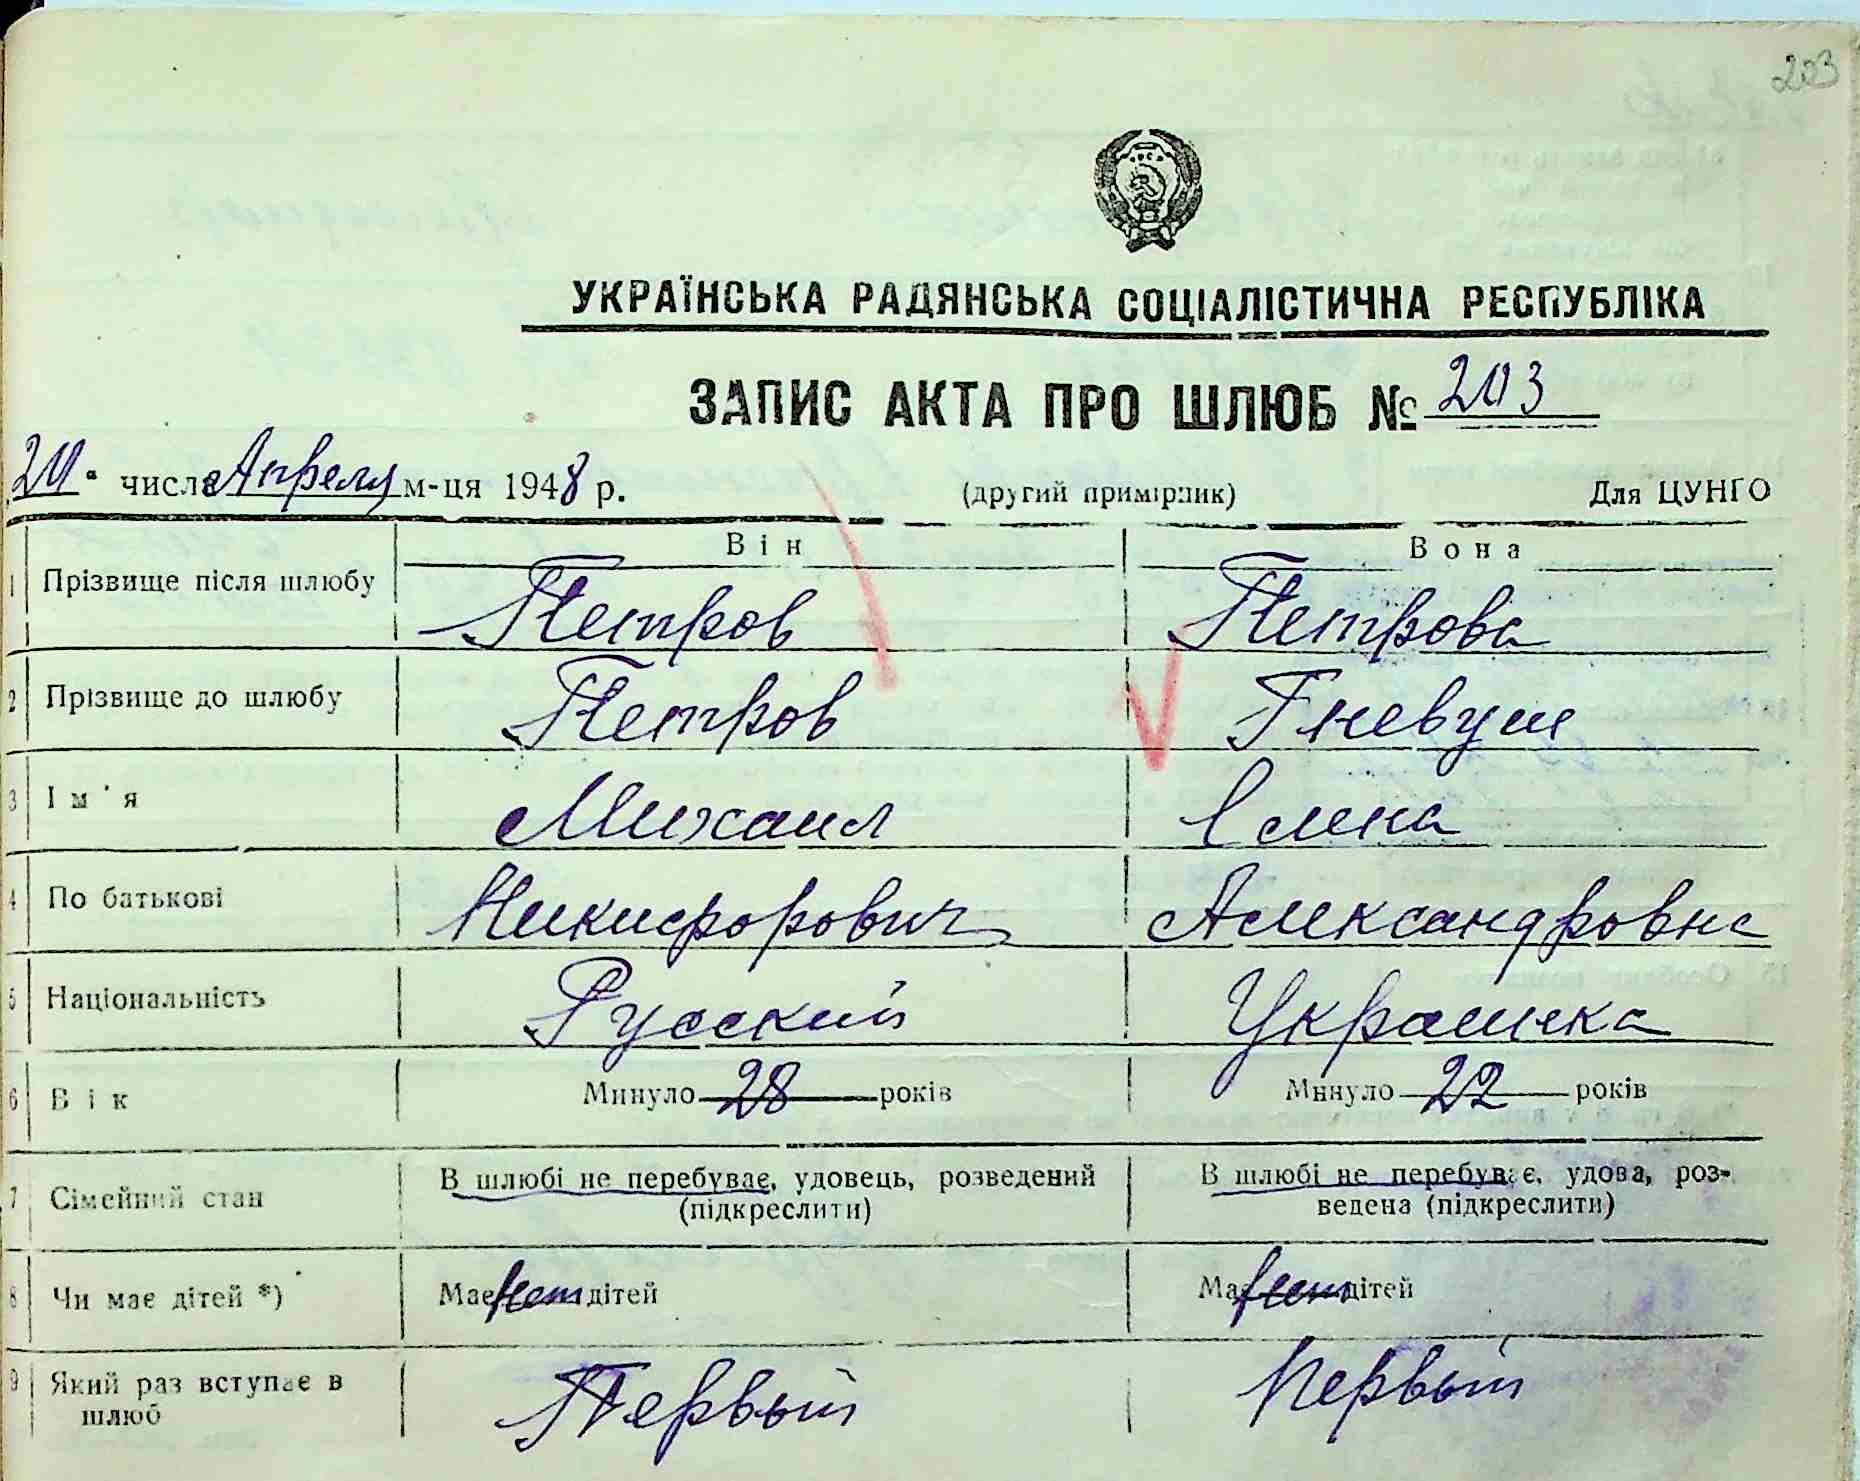 203
УКРАЇНСЬКА РАДЯНСЬКА СОЦІАЛІСТИЧНА РЕСПУБЛІКА
ЗАПИС АКТА ПРО ШЛЮБ № 203
20 числа Апреля м-ця 1948 р. (другий примірник) Для ЦУНГО
Він Вона
1 Прізвище після шлюбу Петров Петрова
2 Прізвище до шлюбу Петров Гневуш
3 Ім'я Михаил Елена
4 По батькові Никифорович Александровна
5 Національність Русский Украинка
6 Вік Минуло 28 років Минуло 22 років
7 Сімейний стан В шлюбі не перебуває, удовець, розведений (підкреслити) В шлюбі не перебуває, удова, роз-
ведена (підкреслити)
8 Чи має дітей *) Має нет дітей Має нет дітей
9 Який раз вступає в шлюб Первый Первый